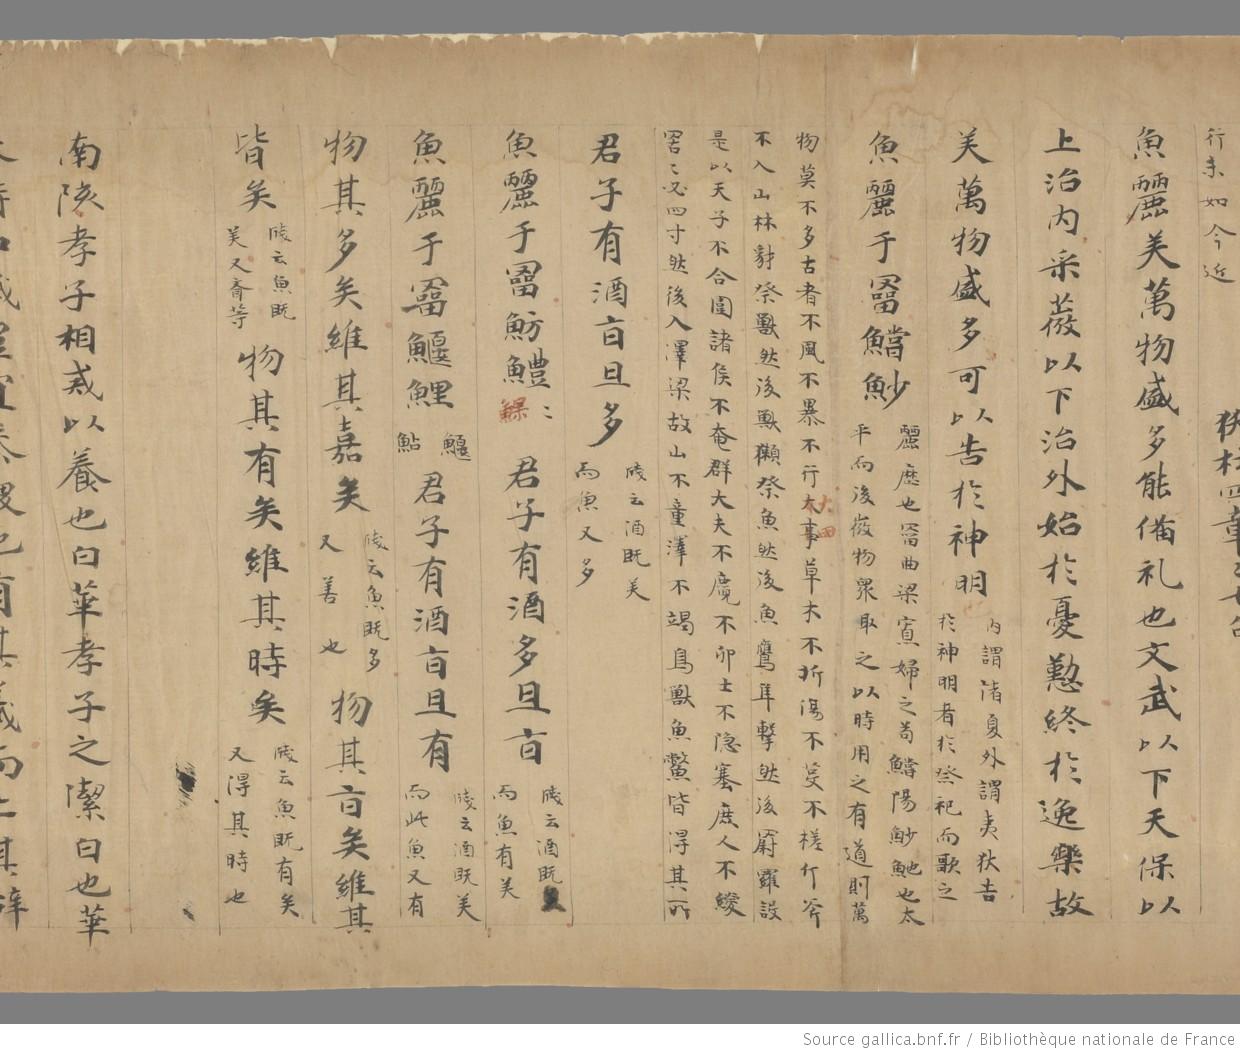 行未如今近
杕杜四章章七句
魚麗美萬物盛多能俻礼也文武以下天保以
上治内采薇以下治外始於憂懃終於逸樂故
美萬物盛多可以告於神明
内謂渚夏外謂夷狄告
於神明者於祭祀而歌之
魚麗于罶鱨魦
麗歷也罶曲梁寡婦之笱鱨陽魦鮀也太
平而後微物眾取之以時用之有道則萬
物莫不多古者不風不暴不行火草木不折傷不芟不槎斤斧
不入山林豺祭獸然後獸獺祭魚然後魚鷹隼擊然後罻羅設
是以天子不合圍諸侯不奄群大夫不麛不卵士不隐塞庶人不緵
罟〻必四寸然後入澤梁故山不童澤不竭鳥獸魚鱉皆得其所
君子有酒旨且多
牋云酒既美
而魚又多
魚麗于罶魴鱧〻
君子有酒多且旨
牋云酒既
而魚有美
魚麗于罶鰋鯉
鰋
鮎
君子有酒旨且有
牋云酒既美
而此魚又有
物其多矣維其嘉矣
牋云魚既多
又善也
物其旨矣維其
皆矣
牋云魚既
美又齊等
物其有矣維其時矣
牋云魚既有矣
又得其時也
南陔孝子相戒以養也白華孝子之潔白也華